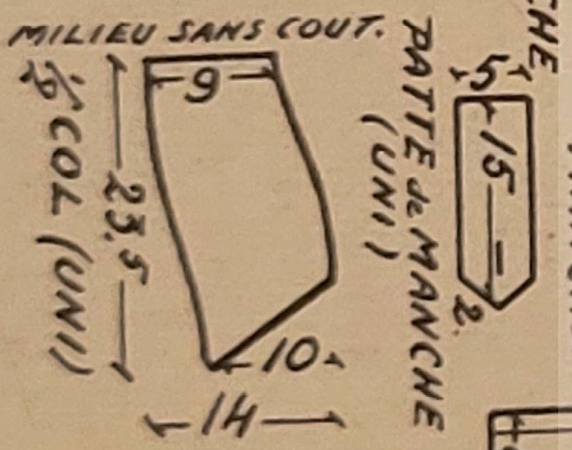 MILIEU SANS COUT.
9
23.5
½ COL (UNI)
10
14
PATTE de MANCHE
(UNI)
5
15
2.
CHE